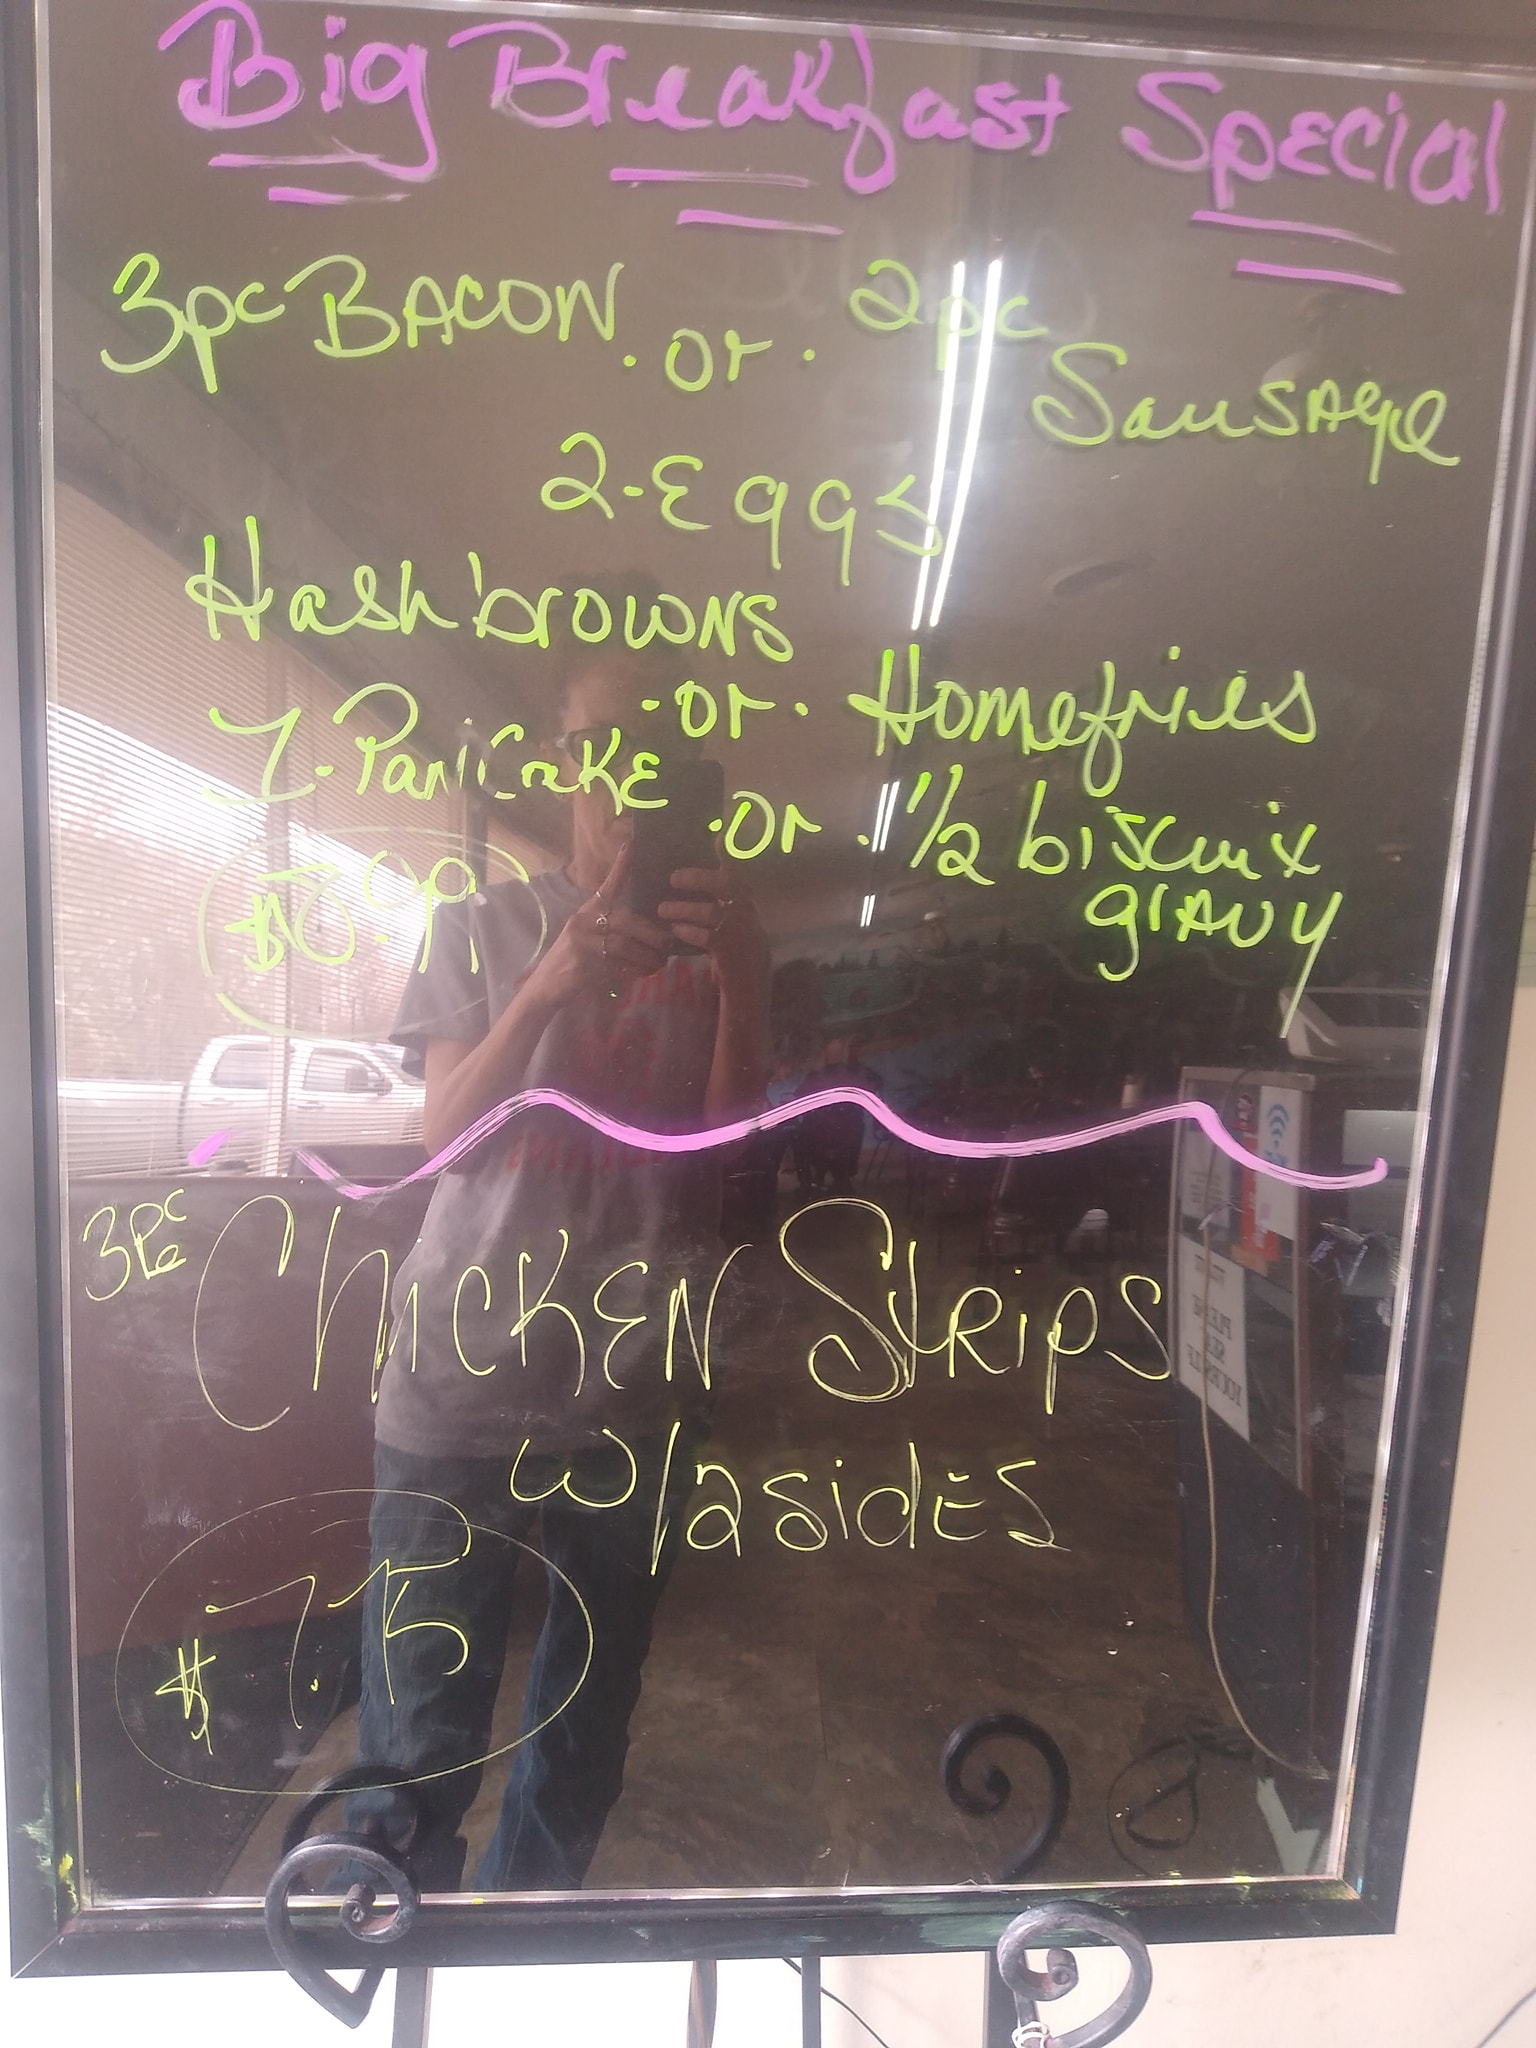 Big Breakfast Special
3pc BACON .or. 2pc Sausage
2-Eggs
Hashbrowns .or. Homefries
1-Pancake .or. 1/2 biscuix gravy
$8.99
3Pc Chicken Strips
w/2 sides
$7.75
PLEASE
SEAT
YOURSELF